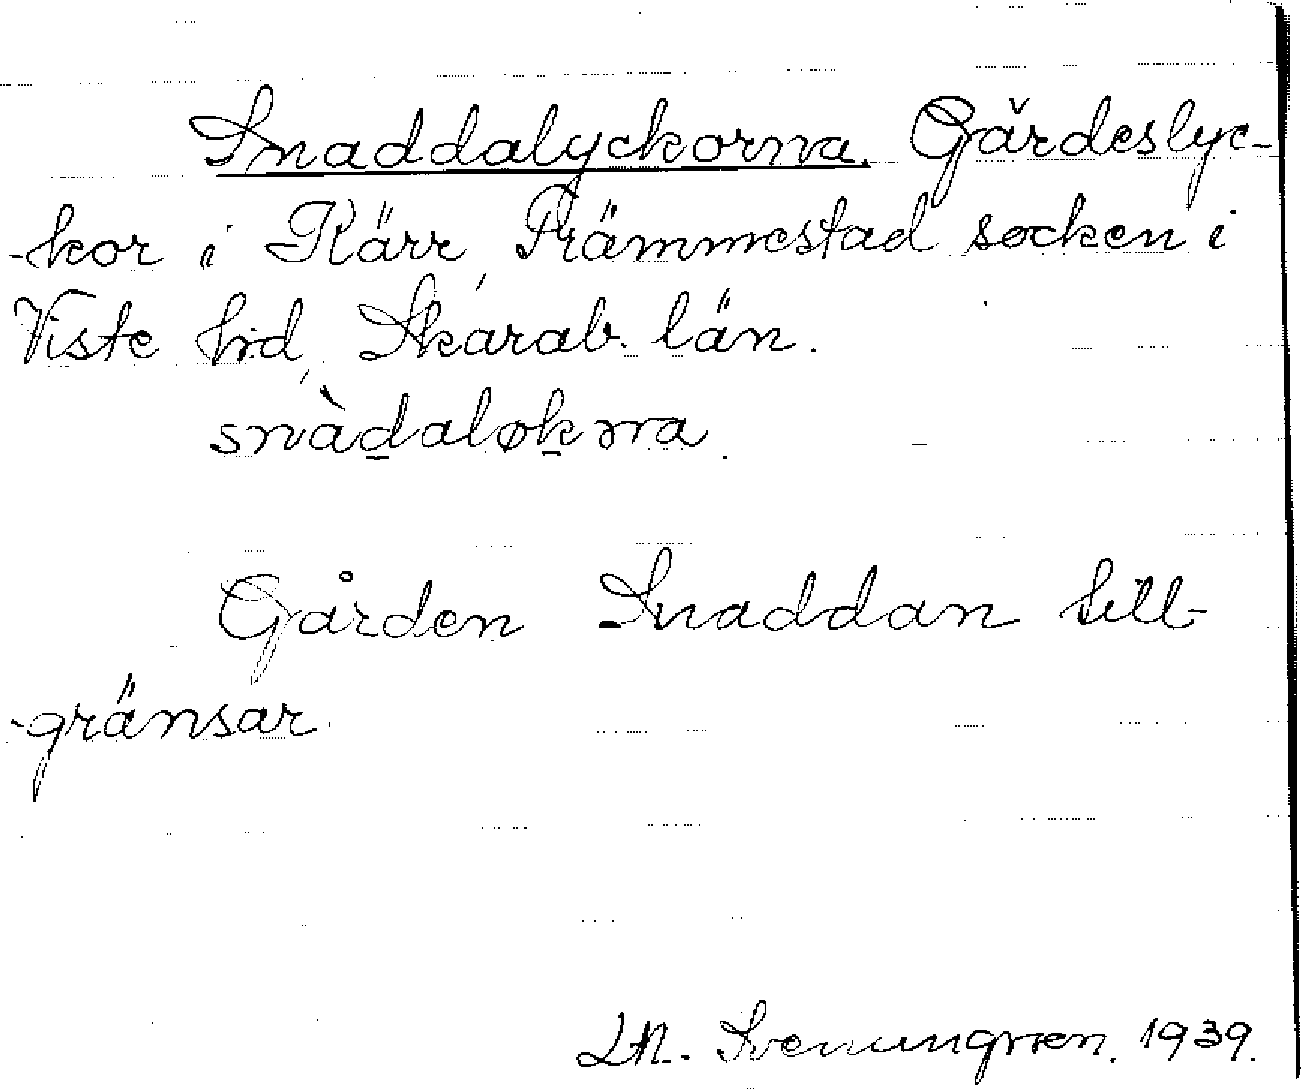 Snaddalyckorna. Gärdeslyc-
-kor i Kärr, Främmestad socken i
Viste hrd, Skarab. län.
snàdaløkɔrna.
Gården Snaddan till-
-gränsar.
Svenungren. 1939.